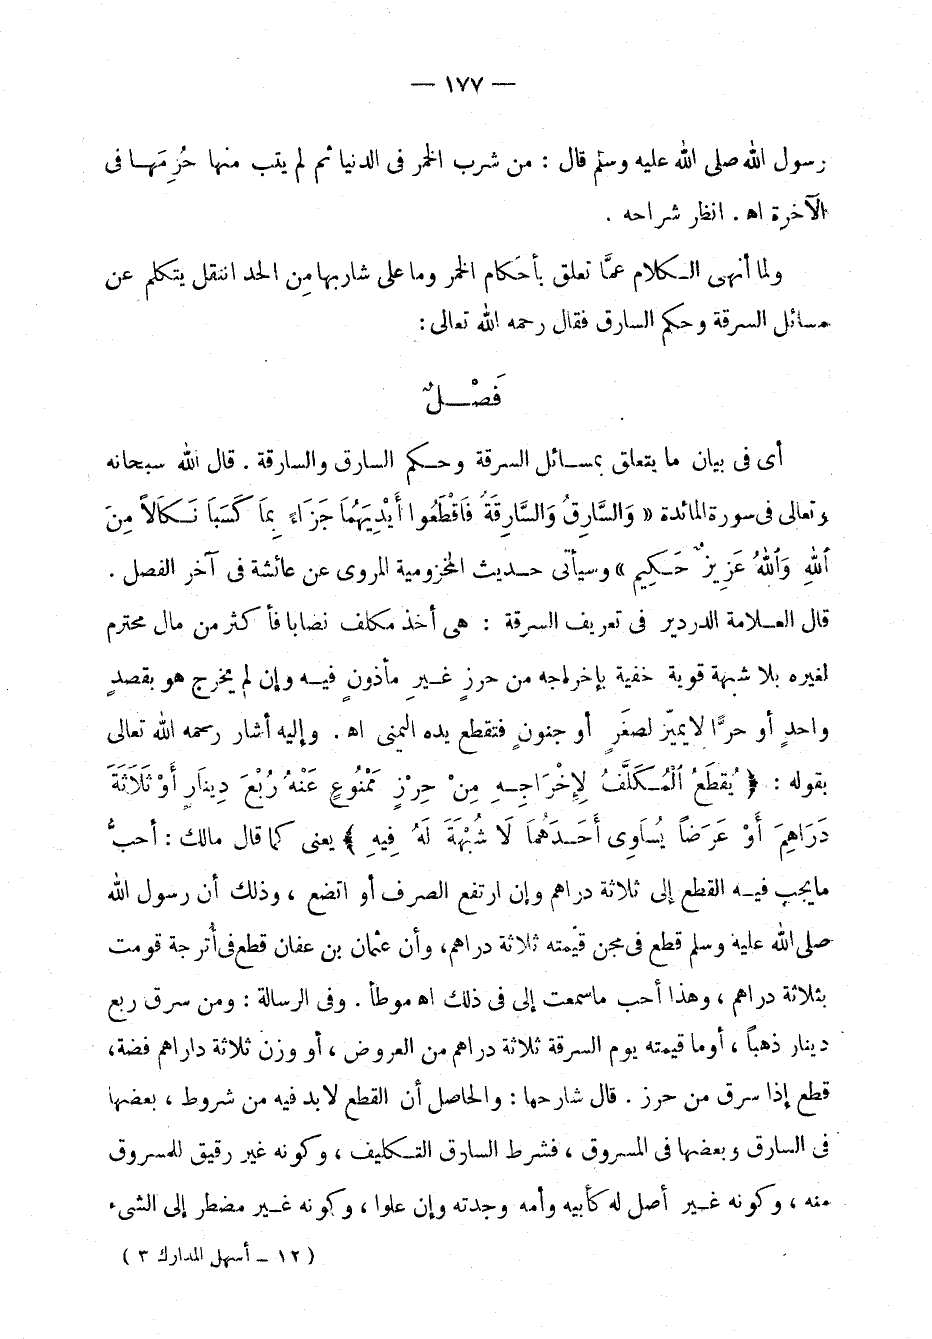 — ١٧٧ —
رسول الله صلى الله عليه وسلم قال : من شرب الخمر فى الدنيا ثم لم يتب منها حُرِمَهـا فى
الآخرة اه . انظر شراحه .
ولما أنهى الـكلام عمَّا تعلق بأحكام الخمر وما على شاربها مِن الحد انتقل يتكلم عن
مسائل السرقة وحكم السارق فقال رحمه الله تعالى :
فَصْــلٌ
أى فى بيان ما يتعلق بمسـائل السرقة وحـكم السارق والسارقة . قال الله سبحانه
وتعالى فى سورة المائدة « وَالسَّارِقُ وَالسَّارِقَةُ فَاقْطَعُوا أَيْدِيَهُمَا جَزَاءً بِمَا كَسَبَا نَـكَالاً مِنَ
اللهِ وَاللهُ عَزِيزٌ حَـكِيم » وسيأتى حـديث المخزومية المروى عن عائشة فى آخر الفصل .
قال العـلامة الدردير فى تعريف السرقة : هى أخذ مكلف نصابا فأكثر من مال محترم
لغيره بلا شبهة قوية خفية بإخراجه من حرزٍ غـيرِ مأذونٍ فيـه وإن لم يخرج هو بقصدِ
واحدٍ أو حرًّا لا يميّز لصغَرٍ أو جنونٍ فتقطع يده اليمنى اه . وإليه أشار رحمه الله تعالى
بقوله : ﴿ يُقطَعُ الْمُـكَلَّفُ لِإِخْرَاجِـهِ مِنْ حِرْزٍ مَمْنُوعٍ عَنْهُ رُبْعَ دِينَارٍ أَوْ ثَلَاثَةَ
دَرَاهِمَ أَوْ عَرَضاً يُسَاوِى أَحَـدَهُمَا لَا شُبْهَةَ لَهُ فِيهِ ﴾ يعنى كما قال مالك : أحبُّ
مايجب فيـه القطع إلى ثلاثة دراهم وإن ارتفع الصرف أو اتضع ، وذلك أن رسول الله
صلى الله عليه وسلم قطع فى مجن قيمته ثلاثة دراهم، وأن عثمان بن عفان قطع فى أترجة قومت
بثلاثة دراهم ، وهذا أحب ماسمعت إلى فى ذلك اه موطأ . وفى الرسالة : ومن سرق ربع
دينار ذهباً ، أو ما قيمته يوم السرقة ثلاثة دراهم من العروض ، أو وزن ثلاثة داراهم فضة،
قطع إذا سرق من حرز . قال شارحها : والحاصل أن القطع لا بد فيه من شروط ، بعضها
فى السارق وبعضها فى المسروق ، فشرط السارق التـكليف ، وكونه غير رقيق للمسروق
منه ، وكونه غـير أصل له كأبيه وأمه وجدته وإن علوا ، وكونه غـير مضطر إلى الشىء
( ١٢ – أسهل المدارك ٣ )